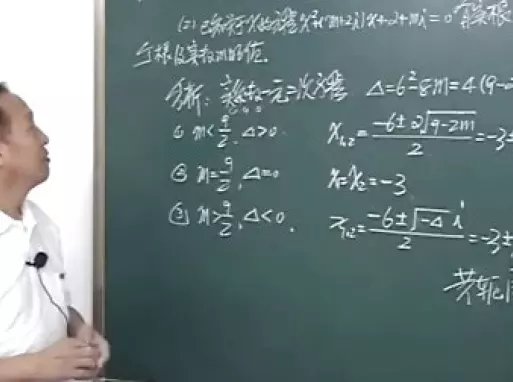 (2) 已知关于x的方程x²+(m+2i)x+2+mi=0有实根
个根及实数m的值.
分析: 实系数一元二次方程 Δ=6²-8m=4(9-2
① m<9/2, Δ>0. x₁,₂=(-6±2√(9-2m))/2=-3±
② m=9/2, Δ=0 x₁=x₂=-3
③ m>9/2, Δ<0. x₁,₂=(-6±√(-Δ) i)/2=-3±